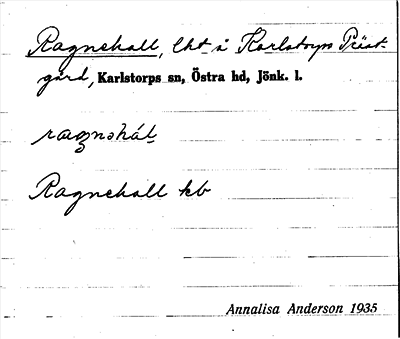 Ragnehall, lht å Karlstorps Präst-
gård, Karlstorps sn, Östra hd, Jönk. l.
Ragnehall kb
Annalisa Anderson 1935